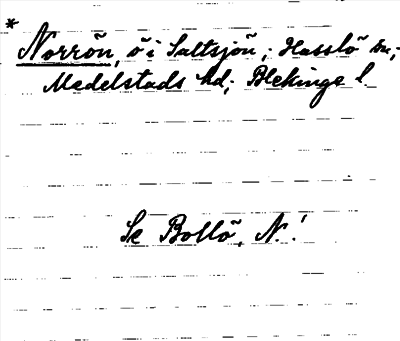 * Norrön, ö i Saltsjön; Hasslö sn;
Medelstads hd; Blekinge l
Se Bollö, N.!